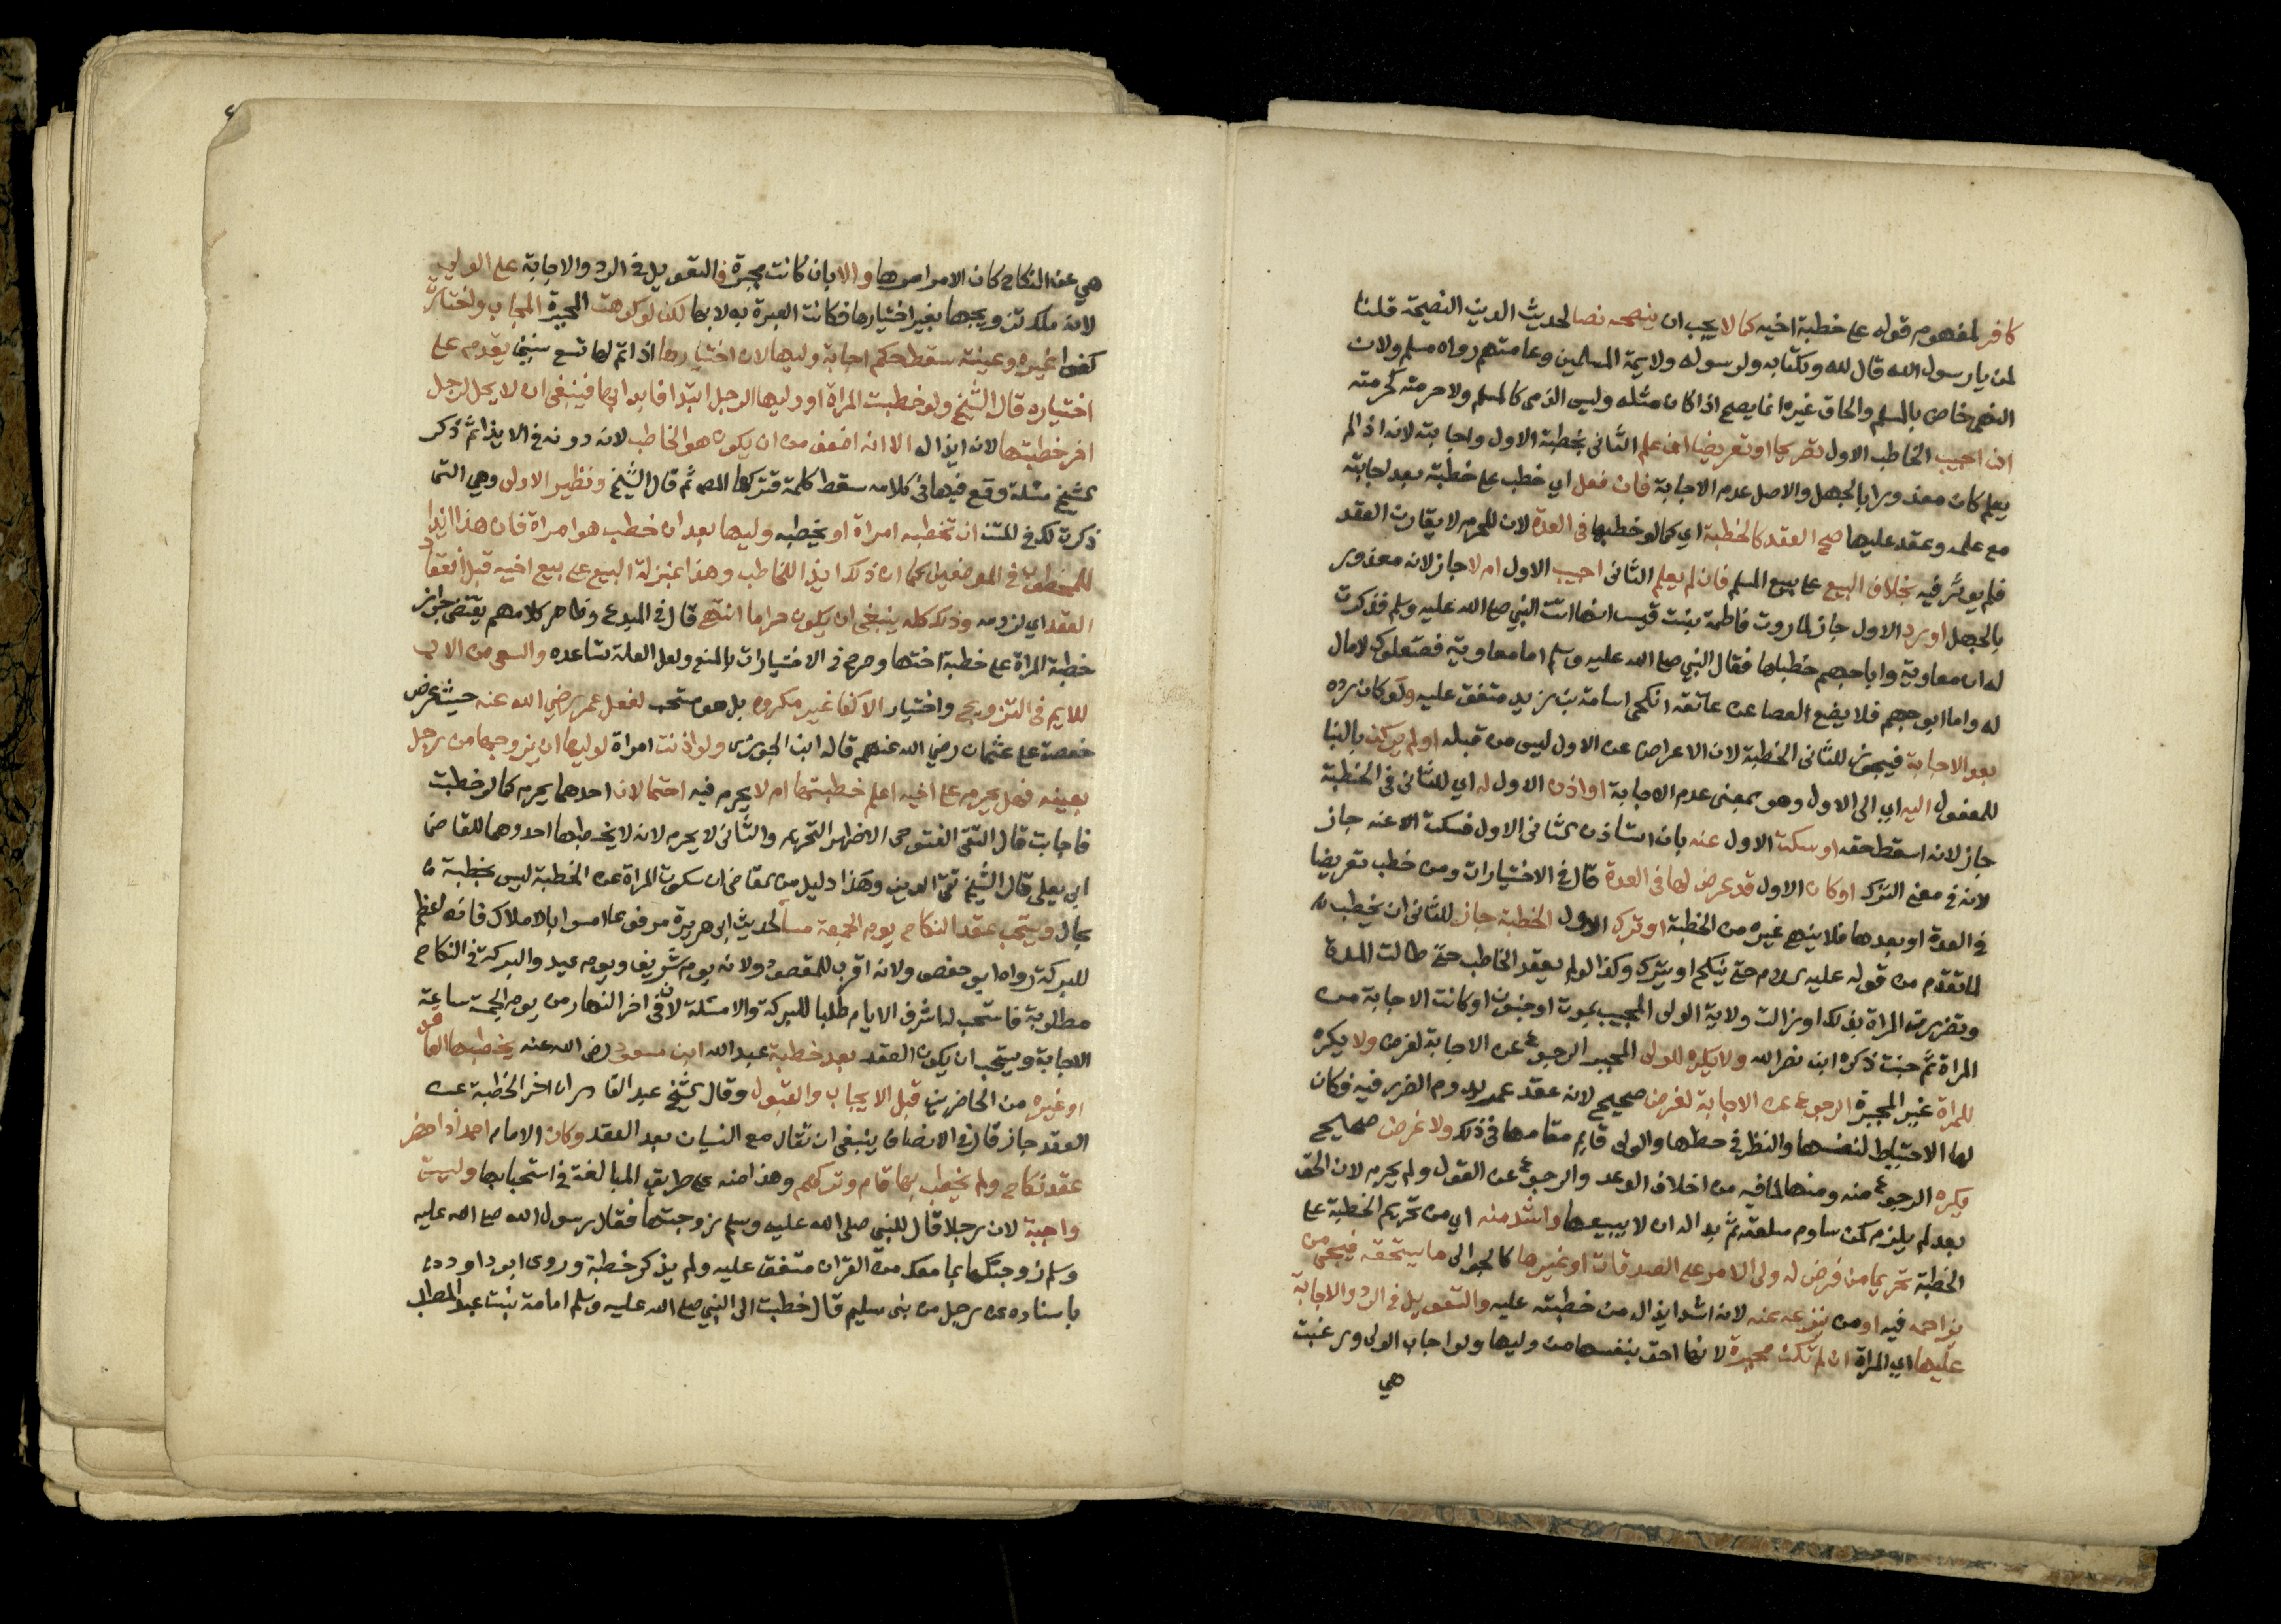 كافر لمفهوم قوله على خطبة اخيه كما لا يجب ان ينصحه نصا لحديث الدين النصيحة قلنا
لمن يا رسول الله قال لله ولكتابه ولرسوله ولايمة المسلمين وعامتهم رواه مسلم ولان
النهي خاص بالمسلم والحاق غيره انما يصح اذا كان مثله وليس الذمي كالمسلم ولا حرمته كحرمته
ان اجيب الخاطب الاول تصريحا او تعريضا ان علم الثاني بخطبة الاول واجابته لانه اذا لم
يعلم كان معذورا بالجهل والاصل عدم الاجابة فان فعل اي خطب على خطبة بعد اجابته
مع علمه وعقد عليها صح العقد كالخطبة اي كما لو خطبها في العدة لان المحرم لا يقارن العقد
فلم يوثر فيه بخلاف البيع على بيع المسلم فان لم يعلم الثاني اجيب الاول ام لا جاز لانه معذور
بالجهل او رد الاول جاز لما روت فاطمة بنت قيس انها اتت النبي صلى الله عليه وسلم فذكرت
له ان معاوية وابا جهم خطباها فقال النبي صلى الله عليه وسلم اما معاوية فصعلوك لا مال
له واما ابو جهم فلا يضع العصا عن عاتقه انكحي اسامة بن زيد متفق عليه ولو كان رده
بعد الاجابة فيجوز للثاني الخطبة لان الاعراض عن الاول ليس من قبله او لم يركن بالبنا
للمفعول اليه اي الى الاول وهو بمعنى عدم الاجابة او اذن الاول له اي للثاني في الخطبة
جاز لانه اسقط حقه او سكت الاول عنه بان استاذن الثاني الاول فسكت عنه جاز
لانه في معنى الترك او كان الاول قد عرض لها في العدة قال في الاختيارات ومن خطب تعريضا
في العدة او بعدها فلا ينهى غيره من الخطبة او ترك الاول الخطبة جاز للثاني ان يخطب
لما تقدم من قوله عليه السلام حتى ينكح او يترك وكذا لو لم يعقد الخاطب حتى طالت المدة
وتضررت المراة بذلك او زالت ولاية الولي المجيب بموت او جنون او كانت الاجابة من
المراة ثم جنت ذكره ابن نصر الله ولا يكره للولي المجبر الرجوع عن الاجابة لغرض ولا يكره
للمراة غير المجبرة الرجوع عن الاجابة لغرض صحيح لانه عقد عمر يدوم الضرر فيه فكان
لها الاحتياط لنفسها والنظر في حظها والولي قايم مقامها في ذلك ولا غرض صحيح
يكره الرجوع منه ومنها لما فيه من اخلاف الوعد والرجوع عن القول ولم يحرم لان الحق
بعد لم يلزم كمن ساوم سلعته ثم بدا له ان لا يبيعها واشد منه اي من تحريم الخطبة على
الخطبة تحريما من فرض له ولي الامر على الصدقات او غيرها كالجوالي ما يستحقه فيجي من
يزاحمه فيه او من ينزعه عنه لانه اشد ايذا له من خطبته عليه والتعويل في الرد والاجابة
عليها اي المراة ان لم تكن مجبرة لانها احق بنفسها من وليها ولو اجاب الولي ورغبت
هي
هي عن النكاح كان الامر امرها والا بان كانت مجبرة فالتعويل في الرد والاجابة على الولي
لانه ملك تزويجها بغير اختيارها فكانت العبرة به لا بها لكن لو كرهت المجبرة المجاب واختارت
كفوا غيره وعينته سقط حكم اجابة وليها لان اختيارها اذا تم لها تسع سنين يقدم على
اختياره قال الشيخ ولو خطبت المراة او وليها الرجل ابتدا فاجابهما فينبغي ان لا يحل لرجل
اخر خطبتها لانه ايذا له الا انه اضعف من ان يكون هو الخاطب لانه دونه في الايذا ثم ذكر
الشيخ مسئلة وقع فيها في كلامه سقط كلمة فتركها المص ثم قال الشيخ ونظير الاولى وهي التي
ذكرت لك في المتن ان تخطبه امراة او يخطبه وليها بعد ان خطب هو امراة فان هذا ايذا
للمخطوب في الموضعين كما ان ذلك ايذا للخاطب وهذا بمنزلة البيع على بيع اخيه قبل انعقاد
العقد اي لزومه وذلك كله ينبغي ان يكون حراما انتهى قال في المبدع وظاهر كلامهم يقتضي جواز
خطبة المراة على خطبة اختها وصرح في الاختيارات بالمنع ولعل العلة تساعده والسعي من الاب
للايم في التزويج واختيار الاكفا غير مكروه بل هو مستحب لفعل عمر رضي الله عنه حيث عرض
حفصة على عثمان رضي الله عنهم قاله ابن الجوزي ولو اذنت امراة لوليها ان يزوجها من رجل
بعينه فهل يحرم على اخيه المسلم خطبتها ام لا يحرم فيه احتمالان احدهما يحرم كما لو خطبت
فاجابت قال التقي الفتوحي الاظهر التحريم والثاني لا يحرم لانه لا يخطبها احد وهما للقاضي
ابي يعلى قال الشيخ تقي الدين وهذا دليل من القاضي ان سكوت المراة عن الخطبة ليس بخطبة
بحال ويستحب عقد النكاح يوم الجمعة مسا لحديث ابي هريرة مرفوعا امسوا بالاملاك فانه اعظم
للبركة رواه ابو حفص ولانه اقرب للمقصود ولانه يوم شريف ويوم عيد والبركة في النكاح
مطلوبة فاستحب له اشرف الايام طلبا للبركة والامسا به لان في اخر النهار من يوم الجمعة ساعة
الاجابة ويستحب ان يكون العقد بعد خطبة عبد الله ابن مسعود رضي الله عنه يخطبها العاقد
او غيره من الحاضرين قبل الايجاب والقبول وقال الشيخ عبد القادر ان اخر الخطبة عن
العقد جاز قال في الانصاف ينبغي ان تقال مع النسيان بعد العقد وكان الامام احمد اذا حضر
عقد نكاح ولم يخطب بها قام وتركهم وهذا منه على طريق المبالغة في استحبابها وليست
واجبة لان رجلا قال للنبي صلى الله عليه وسلم زوجنيها فقال رسول الله صلى الله عليه
وسلم زوجتكها بما معك من القران متفق عليه ولم يذكر خطبة وروى ابو داود
باسناده عن رجل من بني سليم قال خطبت الى النبي صلى الله عليه وسلم امامة بنت عبد المطلب